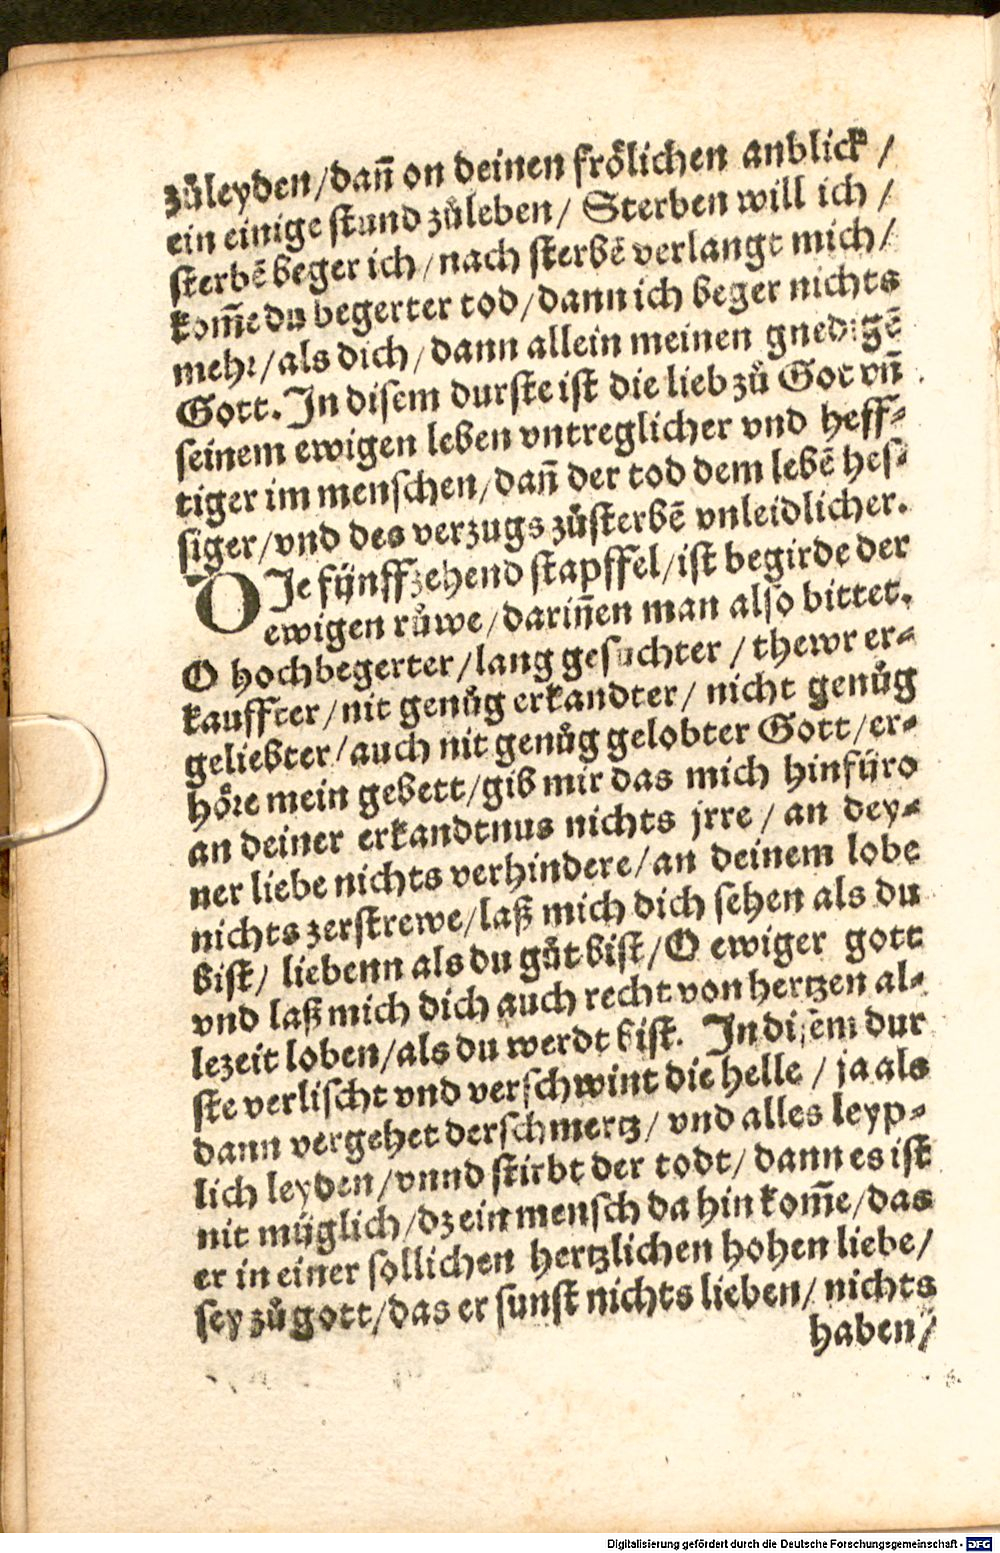 zůleyden/dañ on deinen frölichen anblick/
ein einige stund zůleben/ Sterben will ich/
sterbẽ beger ich/nach sterbẽ verlangt mich/
kom̃e du begerter tod/dann ich beger nichts
mehr/als dich/dann allein meinen gnedigẽ
Gott. In disem durste ist die lieb zů Got vñ
seinem ewigen leben vntreglicher vnd heff-
tiger im menschen/dañ der tod dem lebẽ hes-
siger/vnd des verzugs zůsterbẽ vnleidlicher.
DIe fünffzehend stapffel/ist begirde der
ewigen růwe/dariñen man also bittet.
O hochbegerter/lang gesuchter/thewr er-
kauffter/nit genůg erkandter/ nicht genůg
geliebter/auch nit genůg gelobter Gott/er-
höre mein gebett/gib mir das mich hinfüro
an deiner erkandtnus nichts jrre/ an dey-
ner liebe nichts verhindere/an deinem lobe
nichts zerstrewe/laß mich dich sehen als du
bist/ liebenn als du gůt bist/O ewiger gott
vnd laß mich dich auch recht von hertzen al-
lezeit loben/als du werdt bist. In disem dur
ste verlischt vnd verschwint die helle/ ja als
dann vergehet der schmertz/ vnd alles leyp-
lich leyden/vnnd stirbt der todt/dann es ist
nit müglich/dz ein mensch da hin kom̃e/das
er in einer sollichen hertzlichen hohen liebe/
sey zů gott/das er sunst nichts lieben/ nichts
haben/
Digitalisierung gefördert durch die Deutsche Forschungsgemeinschaft - DFG